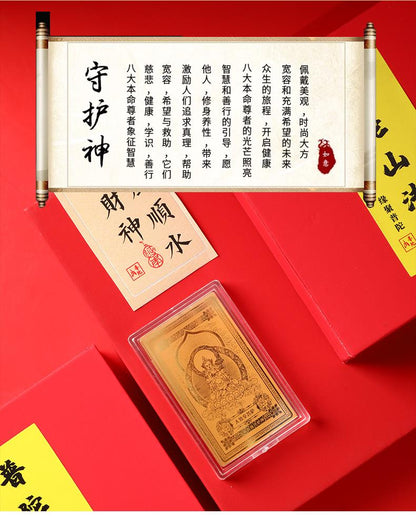 守护神
八大本命尊者象征智慧
慈悲,健康,学识,善行
宽容,希望与救助,它们
激励人们追求真理,帮助
他人,修身养性,带来
智慧和善行的引导,愿
八大本命尊者的光芒照亮
众生的旅程,开启健康
宽容和充满希望的未来
佩戴美观,时尚大方
如意
順水
財神
山
缘聚普陀
普陀